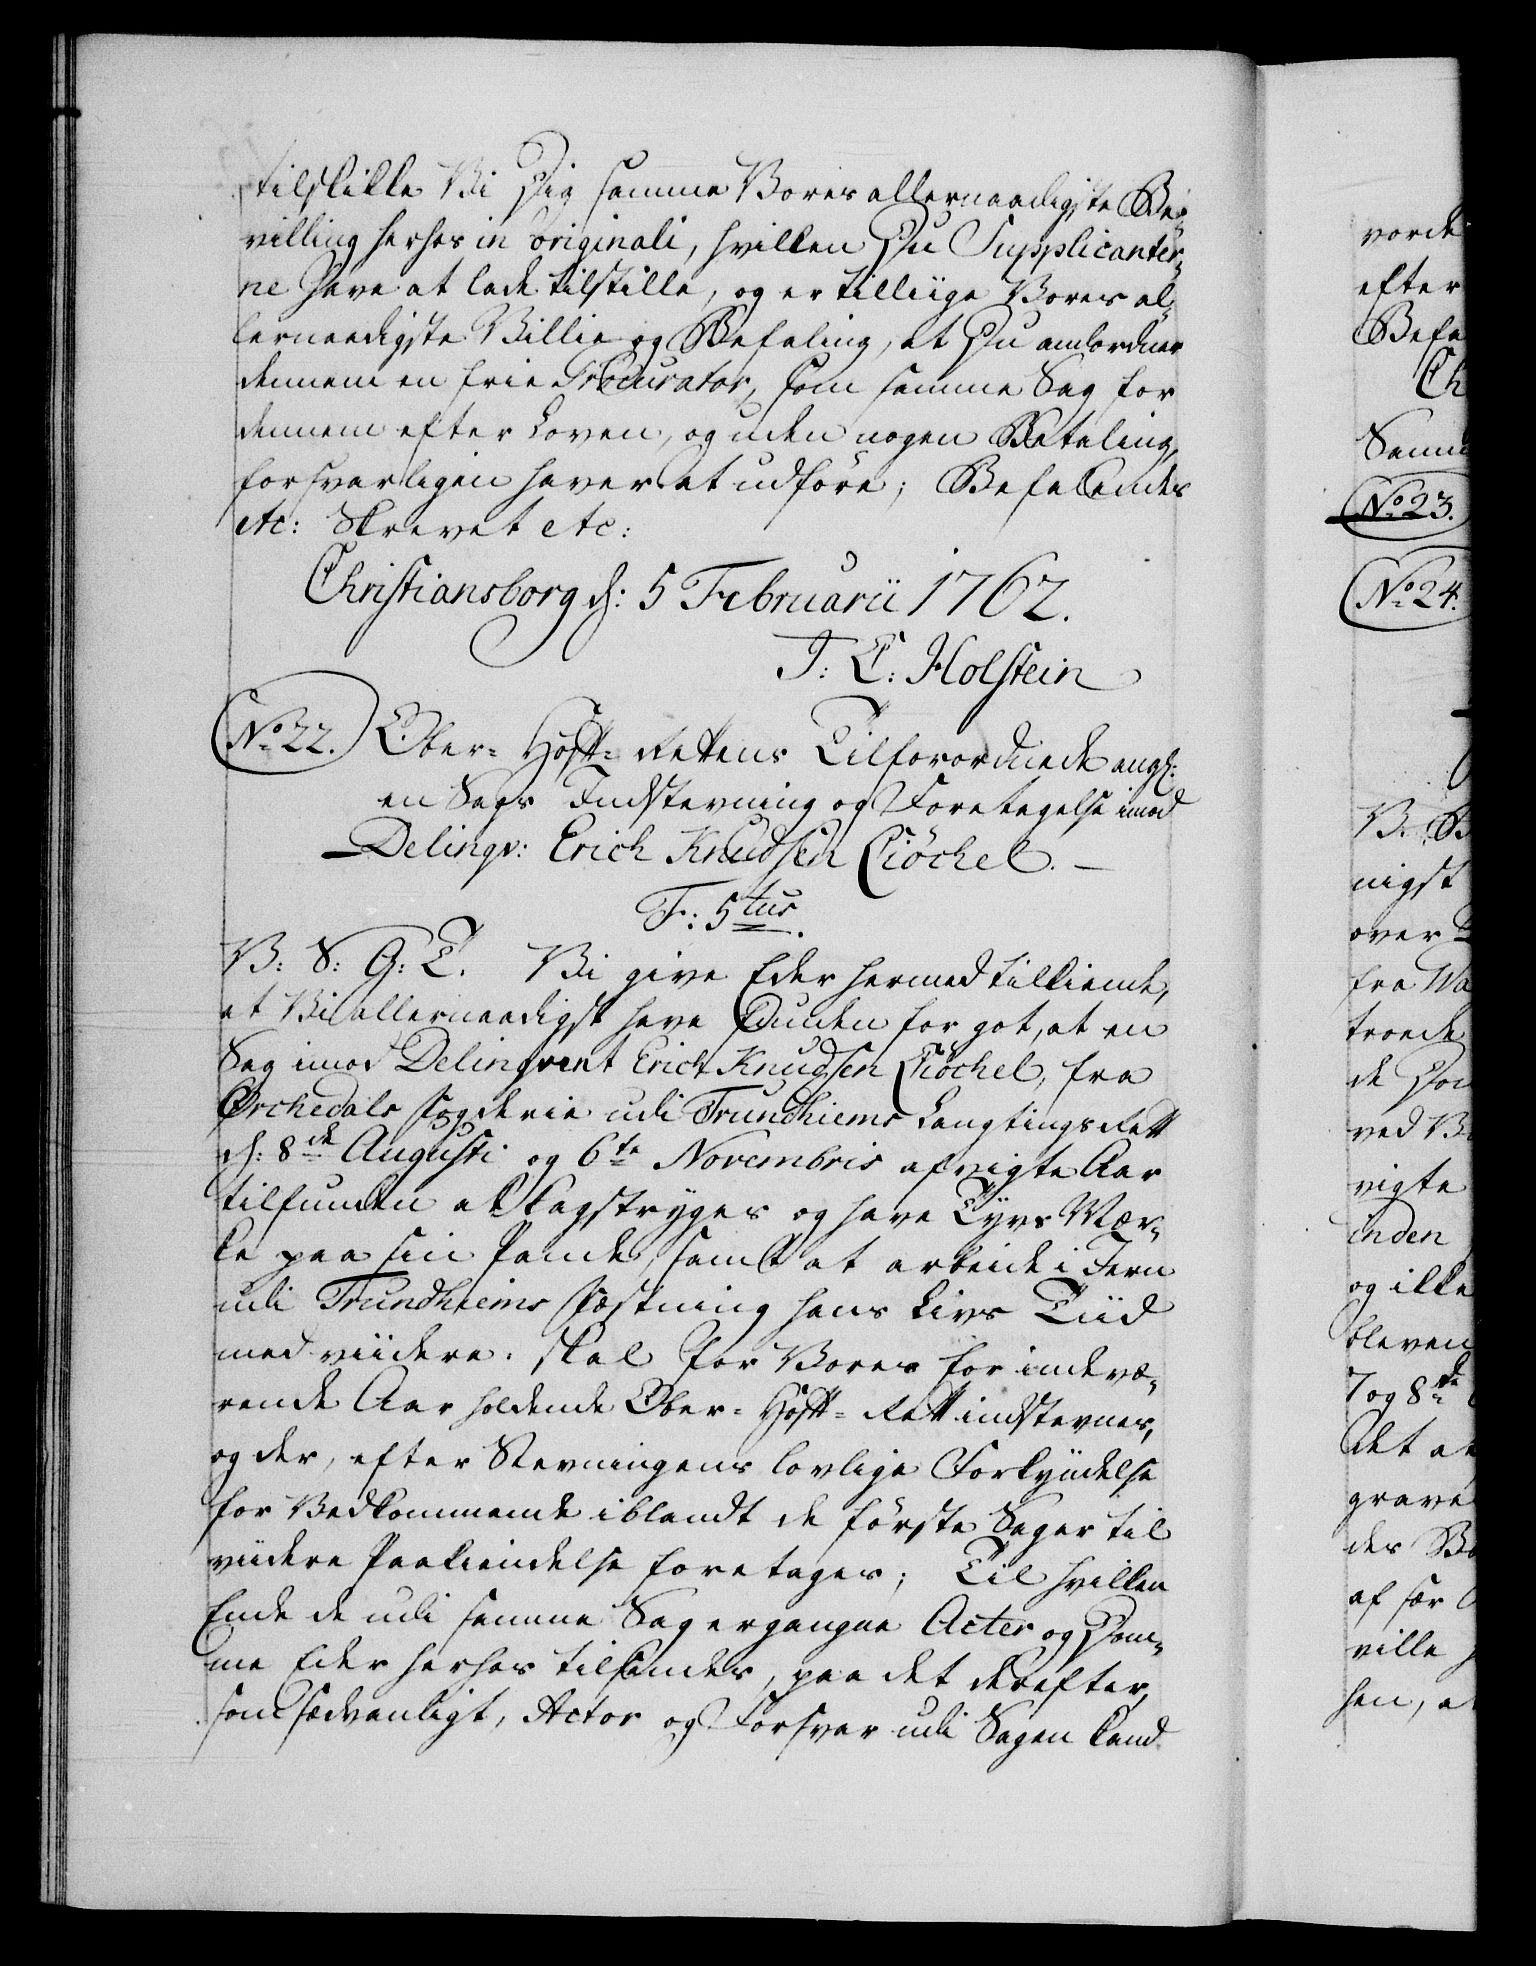 tilskikke Vi Dig samme Vores allernaadigste Be-
villing herhos in originali, hvilken Du Supplicanter-
ne have at lade tilstille, og er tilliige Vores al-
lernaadigste Villie og Befaling, at Du anordner
dennem en frie Procurator, som samme Sag for
dennem efter Loven, og uden nogen Betaling,
forsvarligen haver at udføre; Befalendes
etc: Skrevet etc:
Christiansborg d: 5 Februarii 1762.
J: L: Holstein
No 22. Ober-Hoff-Rettens Tilforordnede angl:
en Sags Indstevning og Foretagelse imod
Delinqv: Erich Knudsen Ciöchel.
F: 5tus.
V: S: G: T. Vi give Eder hermed tilkiende,
at Vi allernaadigst have funden for got, at en
Sag imod Delinqvent Erich Knudsen Ciöchel, fra
Orchedals Fogderie udi Trundhiems Laugtings Rett
d: 8de Augusti og 6te Novembris afvigte Aar
tilfunden at Kagstryges og have Tyvs Mær-
ke paa sin Pande, samt at arbeide i Jern
udi Trundhiems Fæstning hans Livs Tiid
med viidere. skal for Vores for indevæ-
rende Aar holdende Ober-Hoff-Rett indstevnes,
og der, efter Stevningens lovlige Forkyndelse
for Vedkommende iblandt de første Sager til
viidere Paakiendelse foretages; Til hvilken
Ende de udi samme Sag ergangne Acter og Dom-
me Eder herhos tilsendes, paa det derefter,
som sædvanligt, Actor og Forsvar udi Sagen kand
vorde
efter
Befa
Ch
Samm
No 23.
No 24.
V. B
nigst
over
fra Wa
troede
de Dom
ved V
vigte
inden
og ikke
bleven
7 og 8de
det at
grave
des B
af sær
ville
hen, at